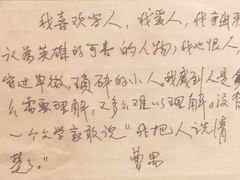 我喜欢写人，我爱人，我
认为英雄的可喜的人物，我也恨人，
卑微、琐碎的小人。我感到人是
么需要理解，又多么难以理解。没有
一个文学家敢说“我把人说清
楚了。”  曹禺